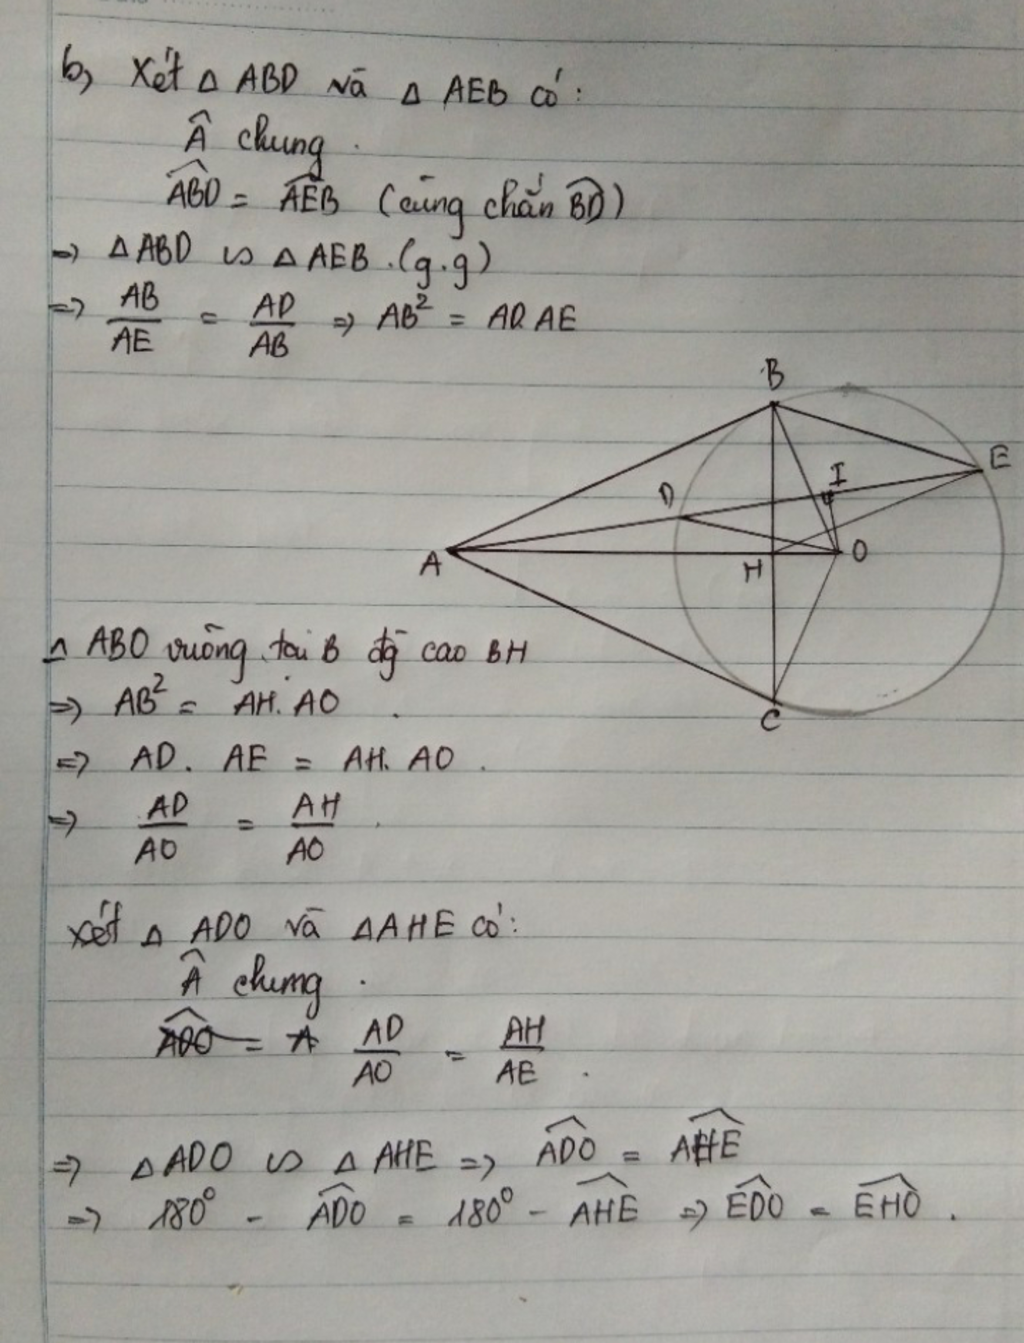 b, Xét Δ ABD và Δ AEB có:
Â chung.
∠ABD = ∠AEB (cùng chắn BD)
=> Δ ABD ∽ Δ AEB.(g.g)
=> AB/AE = AD/AB => AB² = AD.AE
B
E
I
D
A
H
O
C
Δ ABO vuông tại B đg cao BH
=> AB² = AH.AO.
=> AD. AE = AH. AO.
=> AD/AO = AH/AO.
Xét Δ ADO và Δ AHE có:
Â chung.
AD/AO = AH/AE.
=> Δ ADO ∽ Δ AHE => ∠ADO = ∠AHE
=> 180° - ∠ADO = 180° - ∠AHE => ∠EDO = ∠EHO.